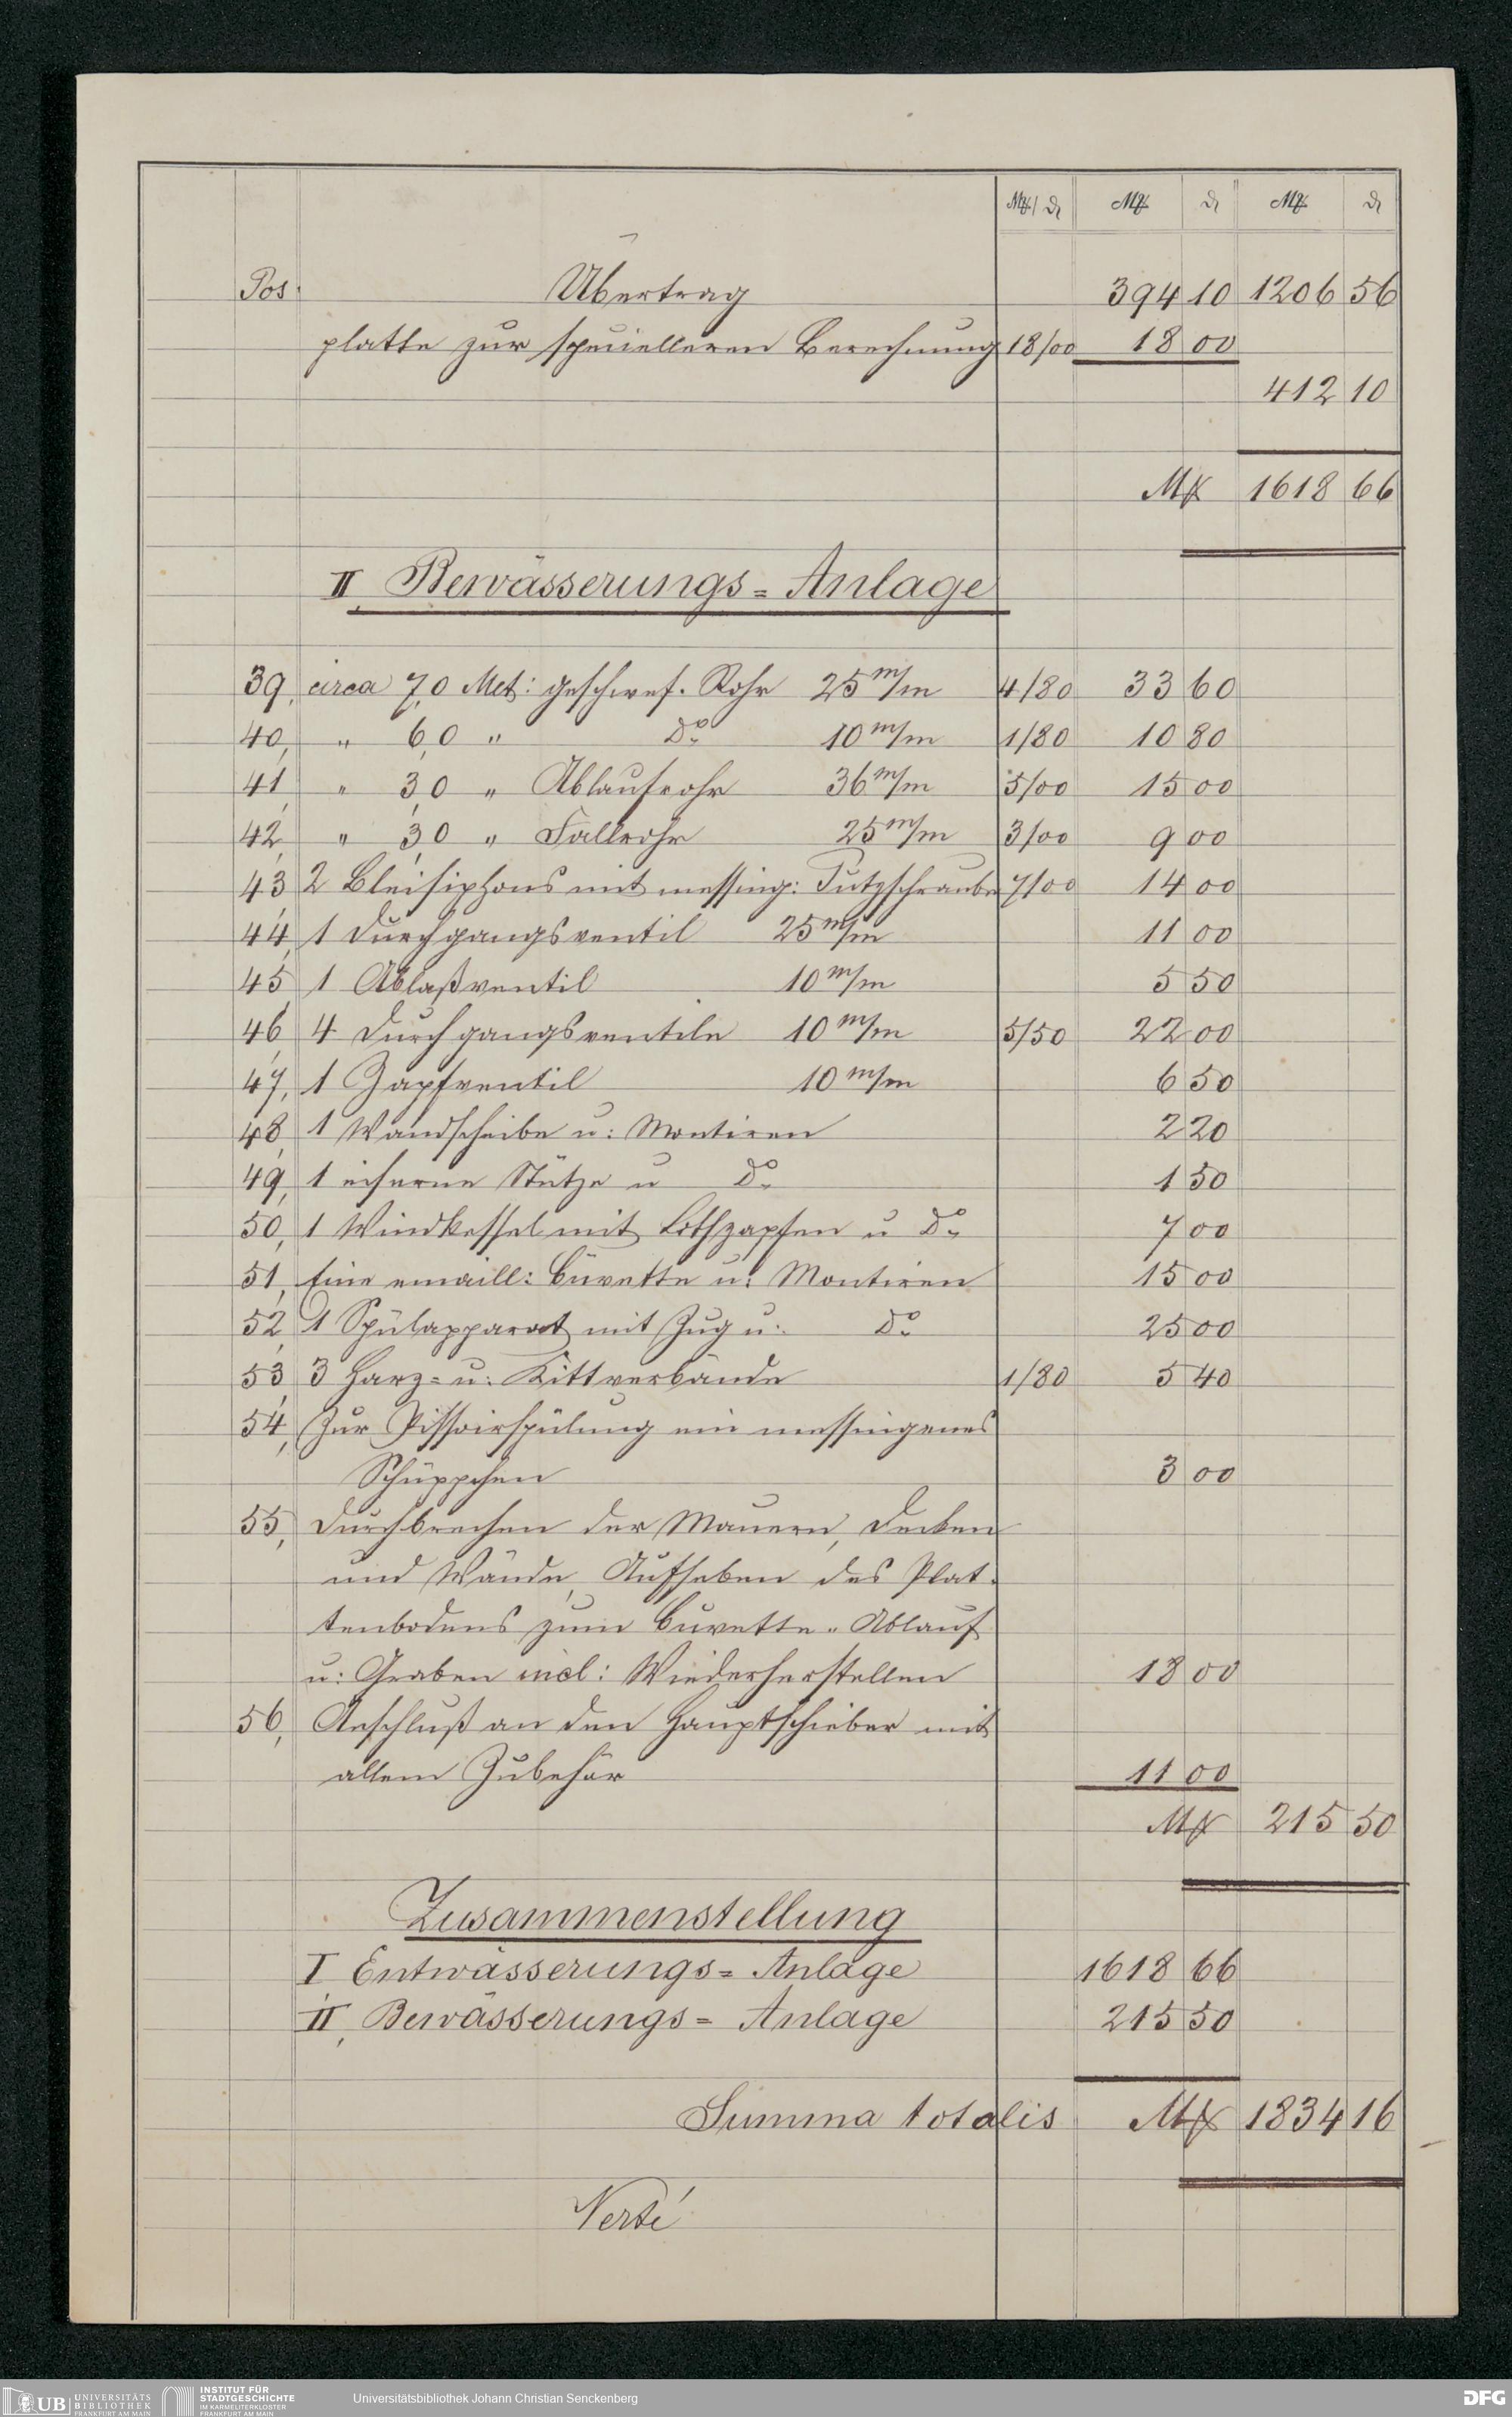 Mk/ ₰ Mk ₰ Mk ₰
Pos. Übertrag 394 10 1206 56
platte zur specielleren Berechnung 18/00 18 00
412 10
Mk 1618 66
II, Bewässerungs=Anlage
39, circa 7,0 Met: geschwef. Rohr 25 m/m 4/80 33 60
40, " 6,0 " Do 10 m/m 1/80 10 80
41, " 3,0 " Ablaufrohr 36 m/m 5/00 15 00
42, " 3,0 " Fallrohr 25 m/m 3/00 9 00
43, 2 Bleisiphons mit messing: Putzschraube 7/00 14 00
44, 1 Durchgangsventil 25 m/m 11 00
45, 1 Ablaßventil 10 m/m 5 50
46, 4 Durchgangsventile 10 m/m 5/50 22 00
47, 1 Zapfventil 10 m/m 6 50
48, 1 Wandscheibe u: Montiren 2 20
49, 1 eiserne Stütze u Do 1 50
50, 1 Windkessel mit Lothzapfen u Do 7 00
51, Eine emaill: Cüvette u: Montiren 15 00
52, 1 Spülapparat mit Zug u: Do 25 00
53, 3 Harz= u: Kittverbände 1/80 5 40
54, Zur Pissoirspülung ein messingenes
Schüppchen 3 00
55, Durchbrechen der Mauern, Decken
und Wände, Aufheben des Plat-
tenbodens zum Cuvette-Ablauf
u: Graben incl: Wiederherstellen 18 00
56, Anschluß an den Hauptschieber mit
allem Zubehör 11 00
Mk 215 50
Zusammenstellung
I Entwässerungs=Anlage 1618 66
II, Bewässerungs=Anlage 215 50
Summa totalis Mk 1834 16
Verte
UB UNIVERSITÄTS
BIBLIOTHEK
FRANKFURT AM MAIN
INSTITUT FÜR
STADTGESCHICHTE
IM KARMELITERKLOSTER
FRANKFURT AM MAIN
Universitätsbibliothek Johann Christian Senckenberg
DFG